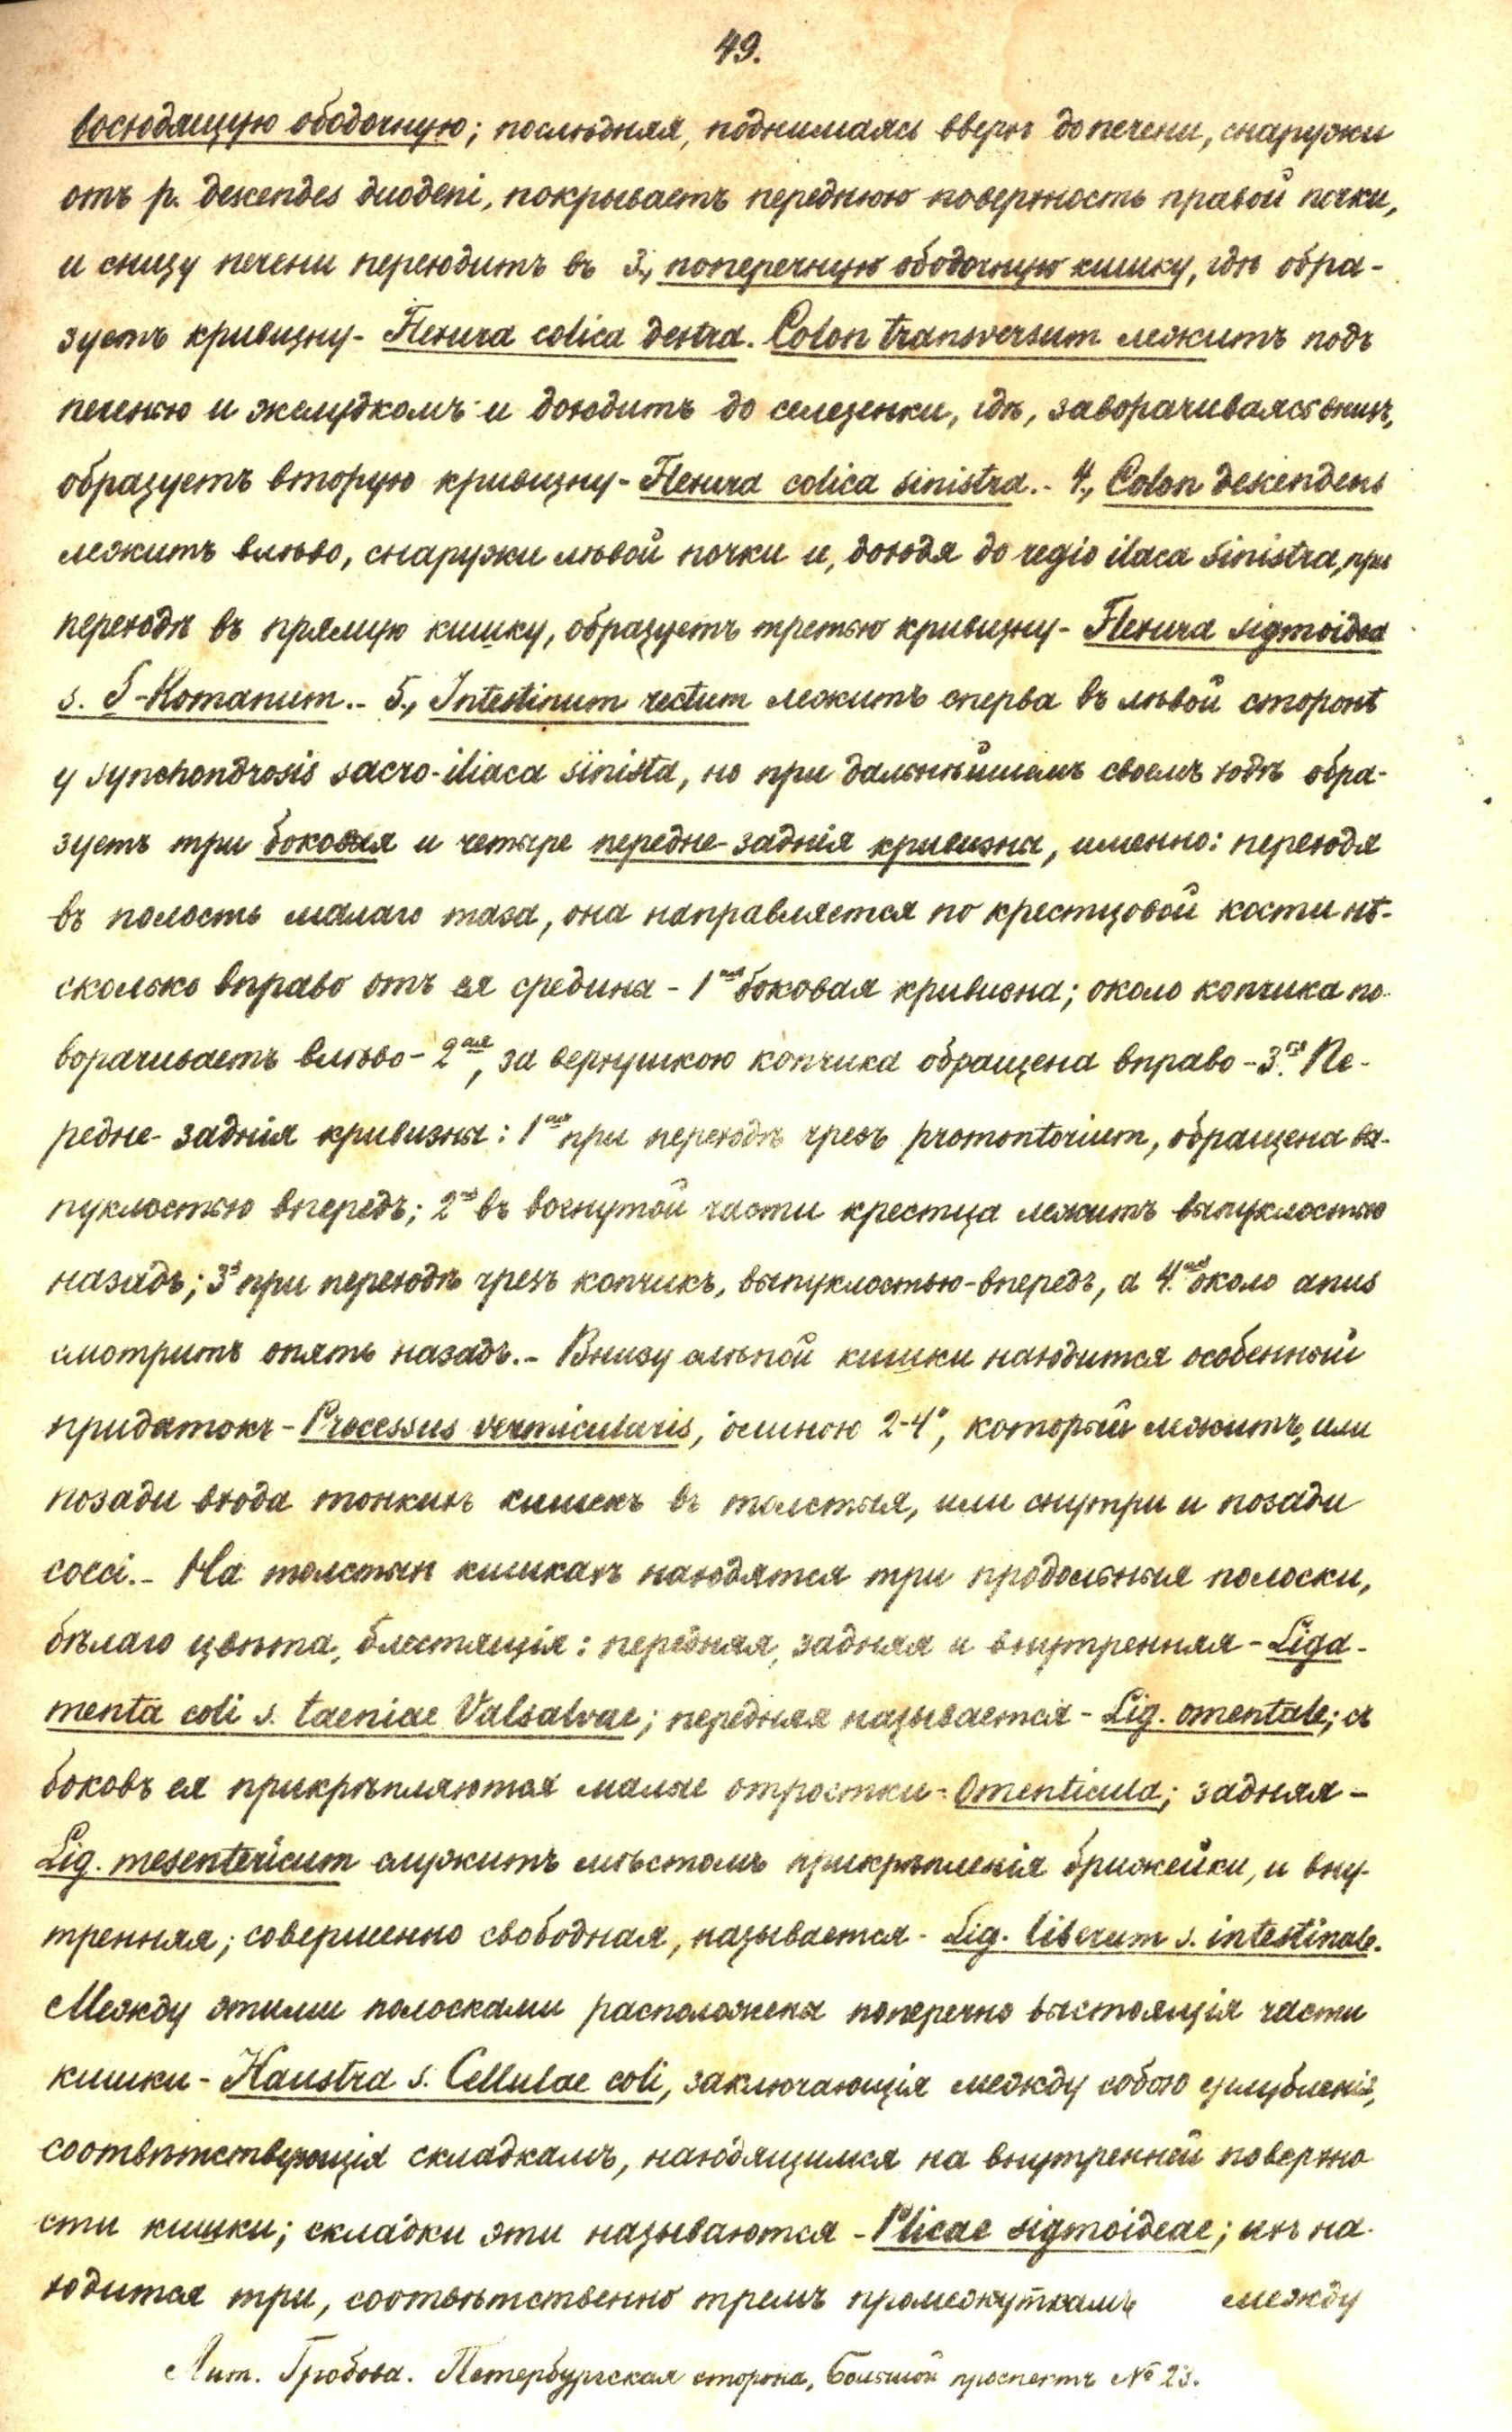 49.
восходящую ободочную; послѣдняя, поднимаясь вверхъ до печени, снаружи
отъ p. descendes duodeni, покрываетъ переднюю поверхность правой почки,
и снизу печени переходитъ въ 3., поперечную ободочную кишку, гдѣ обра-
зуетъ кривизну- Flexura colica dextra. Colon transversum лежитъ подъ
печенью и желудкомъ и доходитъ до селезенки, гдѣ, заворачиваясь внизъ,
образуетъ вторую кривизну- Flexura colica sinistra.- 4., Colon descendens
лежитъ влѣво, снаружи лѣвой почки и, доходя до regio ilaca sinistra, при
переходѣ въ прямую кишку, образуетъ третью кривизну- Flexura sigmoidea
s. S-Romanum.- 5., Intestinum rectum лежитъ сперва въ лѣвой сторонѣ
у synchondrosis sacro-iliaca sinista, но при дальнѣйшемъ своемъ ходѣ обра-
зуетъ три боковыя и четыре передне-заднія кривизны, именно: переходя
въ полость малаго таза, она направляется по крестцовой кости нѣ-
сколько вправо отъ ея средины - 1ая боковая кривизна; около копчика по-
ворачиваетъ влѣво- 2ая, за верхушкою копчика обращена вправо-3.ья Пе-
редне-заднія кривизны: 1ая при переходѣ чрезъ promontorium, обращена вы-
пуклостью впередъ; 2ая въ вогнутой части крестца лежитъ выпуклостью
назадъ; 3я при переходѣ чрезъ копчикъ, выпуклостью-впередъ, а 4.ая около anus
смотритъ опять назадъ.- Внизу слѣпой кишки находится особенный
придатокъ- Processus vermicularis, длиною 2-4", который лежитъ, или
позади входа тонкихъ кишекъ въ толстыя, или снутри и позади
coeci.- На толстых кишкахъ находятся три продольныя полоски,
бѣлаго цвѣта, блестящія: передняя, задняя и внутренняя - Liga-
menta coli s. taeniae Valsalvae; передняя называется - Lig. omentale; съ
боковъ ея прикрѣпляются малые отростки- Omenticula; задняя -
Lig. mesentericum служитъ мѣстомъ прикрѣпленія брижейки, и вну-
тренняя; совершенно свободная, называется - Lig. liberum s. intestinale.
Между этими полосками расположены поперечно выстоящія части
кишки- Haustra s. Cellulae coli, заключающія между собою углубленія,
соотвѣтствующія складкамъ, находящимся на внутренней поверхно
сти кишки; складки эти называются - Plicae sigmoideae; ихъ на-
ходится три, соотвѣтственно тремъ промежуткамъ между
Лит. Гробова. Петербургская сторона, Большой проспектъ № 23.